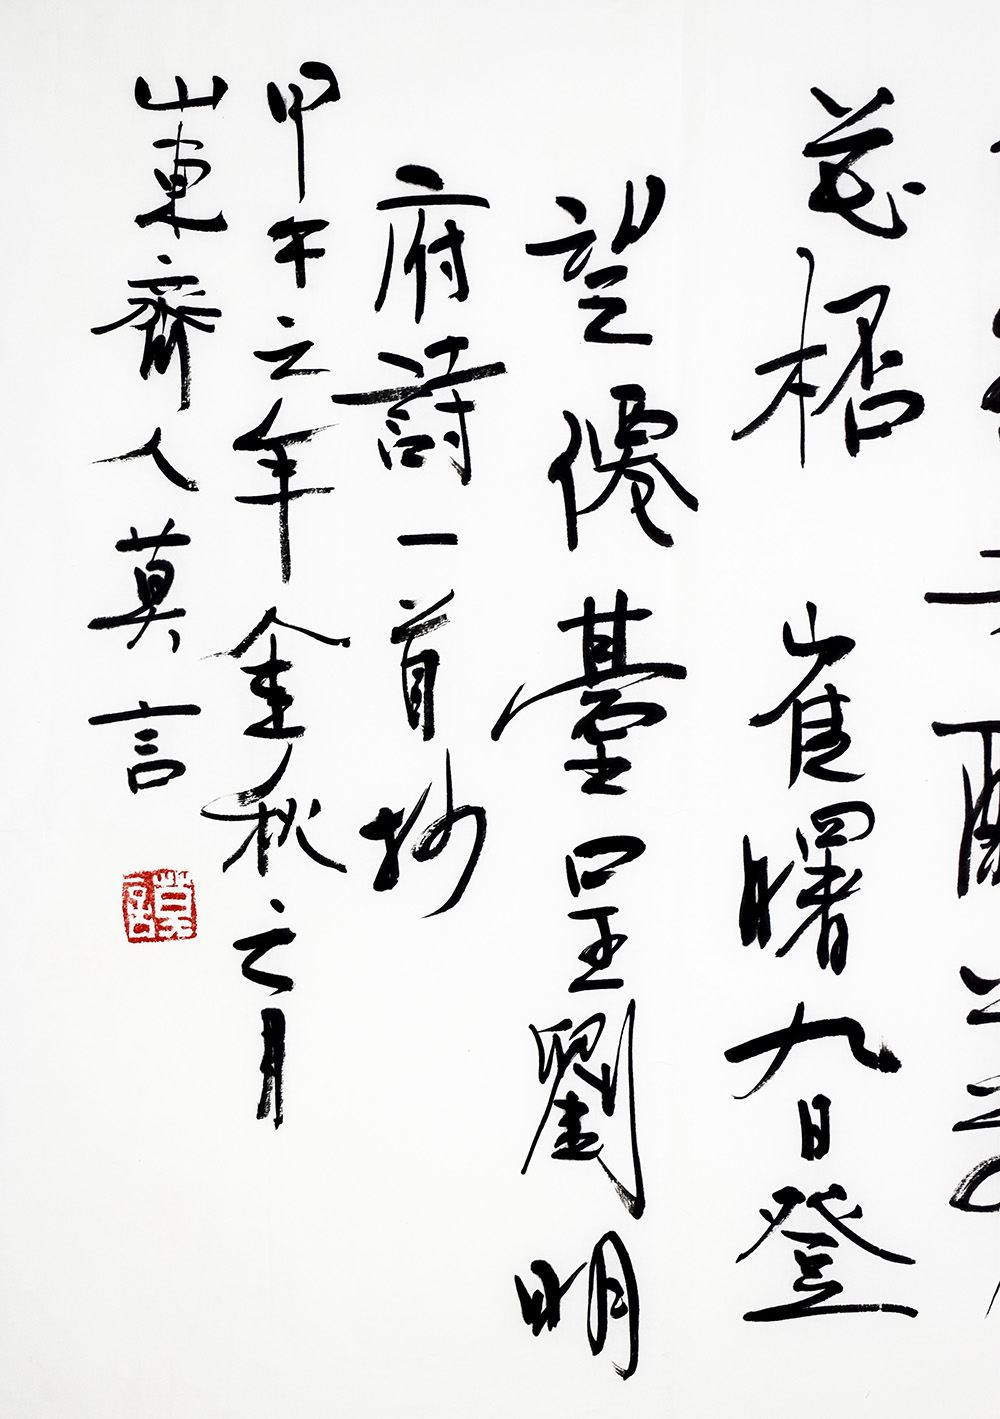 花桮 崔曙九日登
望僊臺呈劉明
府詩一首抄
甲午之年金秋之月
山東齊人莫言
莫言